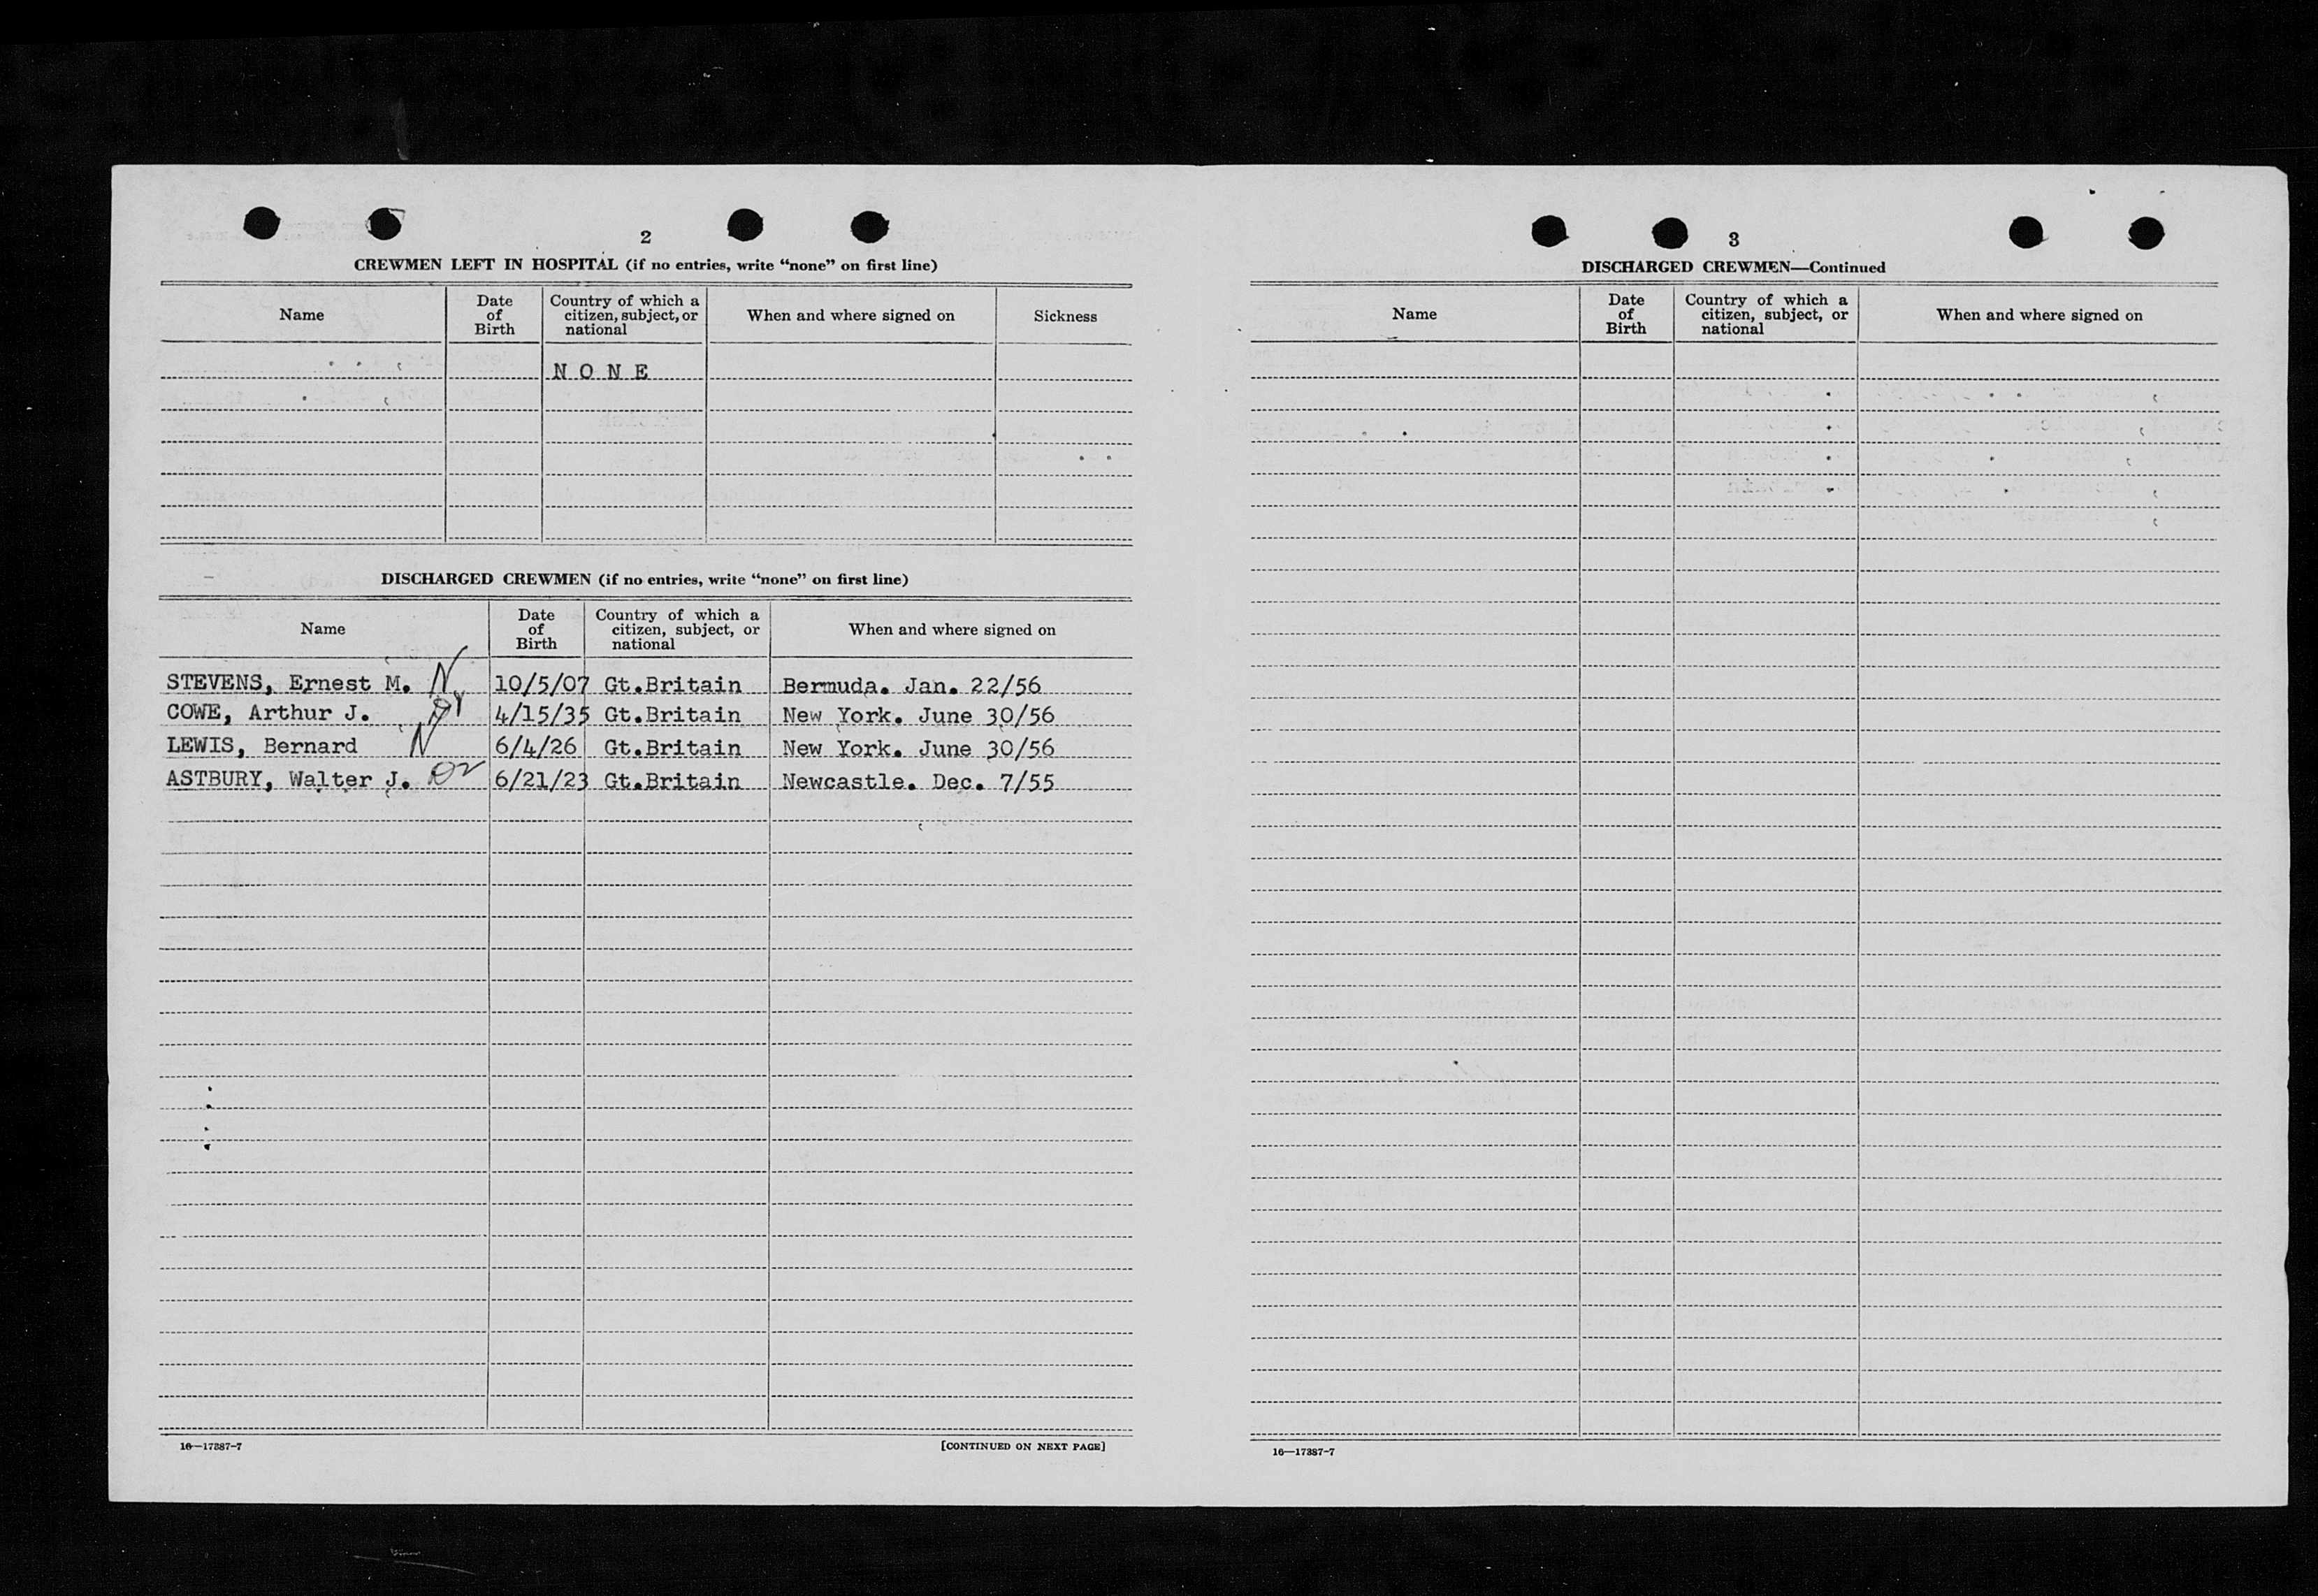 2
CREWMEN LEFT IN HOSPITAL (if no entries, write "none" on first line)
Name
Date of Birth
Country of which a citizen, subject, or national
When and where signed on
Sickness
N O N E
DISCHARGED CREWMEN (if no entries, write "none" on first line)
Name
Date of Birth
Country of which a citizen, subject, or national
When and where signed on
STEVENS, Ernest M. N 10/5/07 Gt.Britain Bermuda. Jan. 22/56
COWE, Arthur J. 4/15/35 Gt.Britain New York. June 30/56
LEWIS, Bernard N 6/4/26 Gt.Britain New York. June 30/56
ASTBURY, Walter J. 6/21/23 Gt.Britain Newcastle. Dec. 7/55
16—17387-7
[CONTINUED ON NEXT PAGE]
3
DISCHARGED CREWMEN—Continued
Name
Date of Birth
Country of which a citizen, subject, or national
When and where signed on
16—17387-7